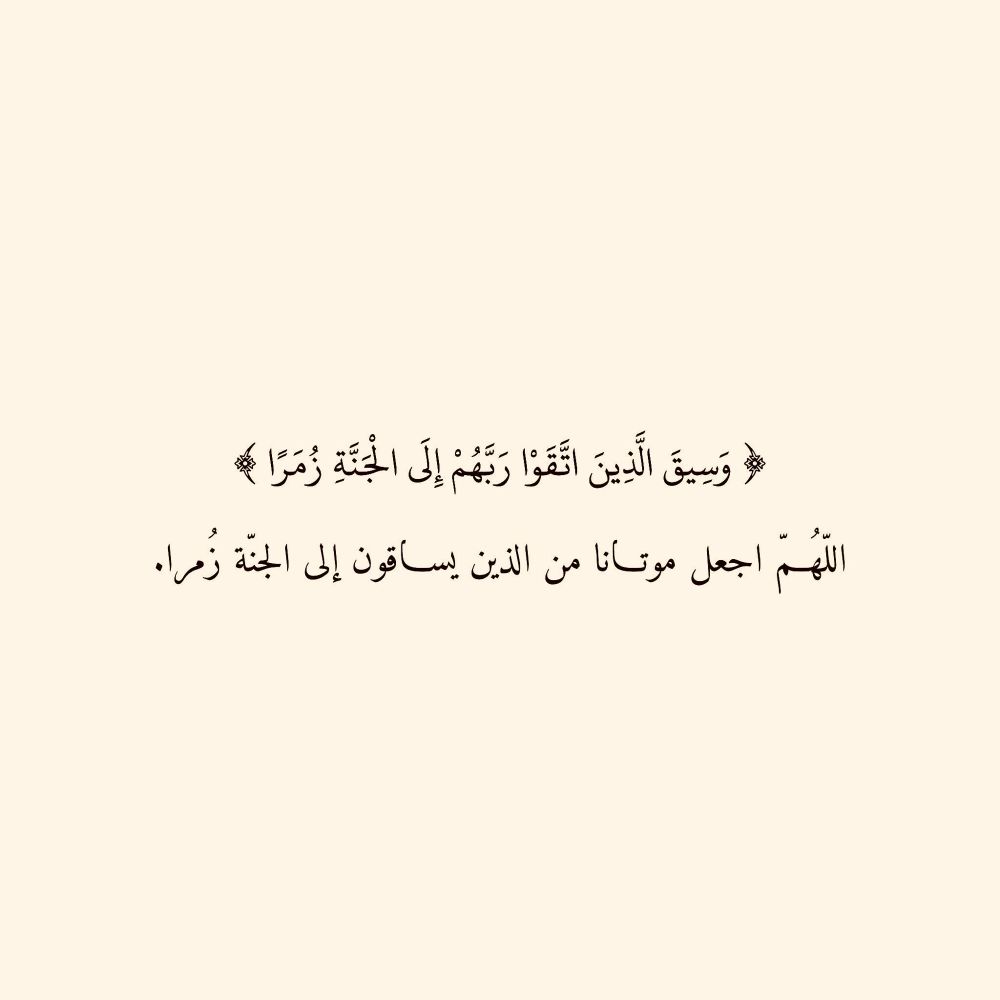 ﴿ وَسِيقَ الَّذِينَ اتَّقَوْا رَبَّهُمْ إِلَى الْجَنَّةِ زُمَرًا ﴾
اللّهُـمّ اجعل موتـانا من الذين يسـاقون إلى الجنّة زُمرا.